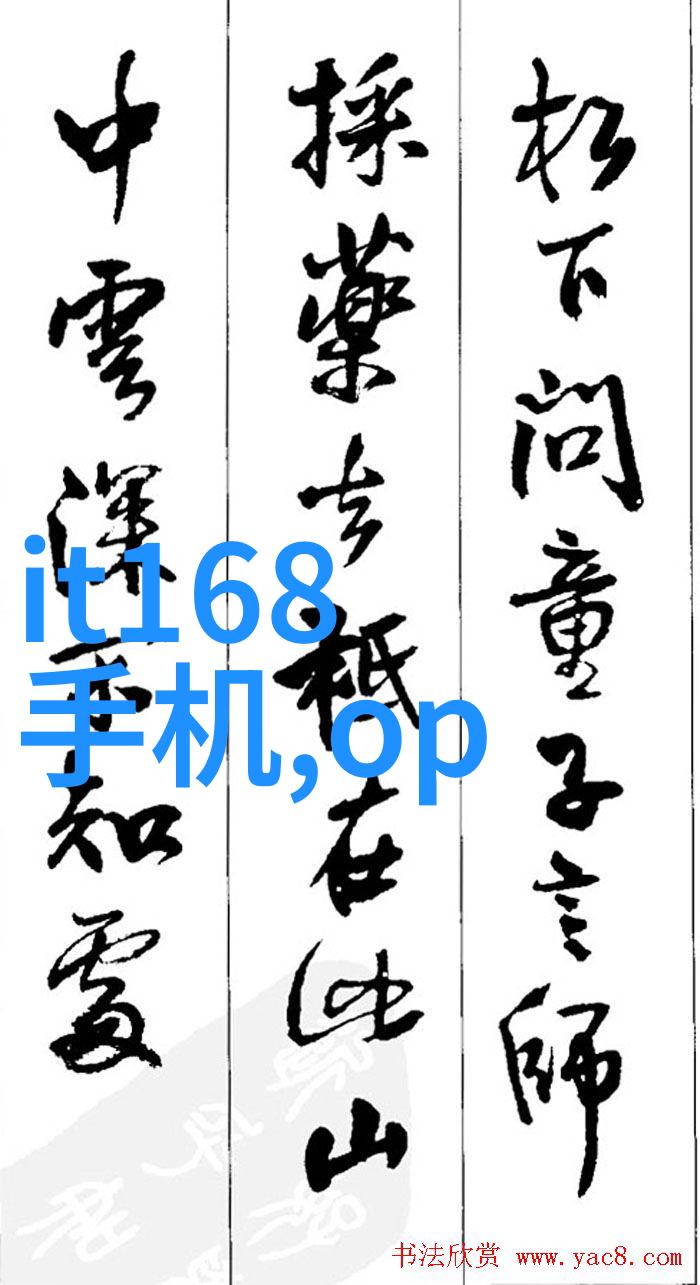 松下問童子言師
採藥去祇在此山
中雲深不知處
it168
手机,op
书法欣赏 www.yac8.com